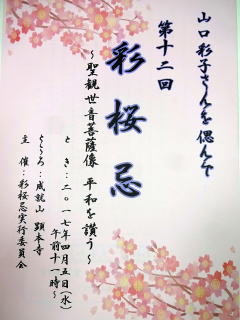 山口彩子さんを偲んで
第十二回
彩桜忌
～聖観世音菩薩像 平和を讃う～
とき：二〇一七年四月五日(水)
午前十一時～
ところ：成就山 顕本寺
主催：彩桜忌実行委員会